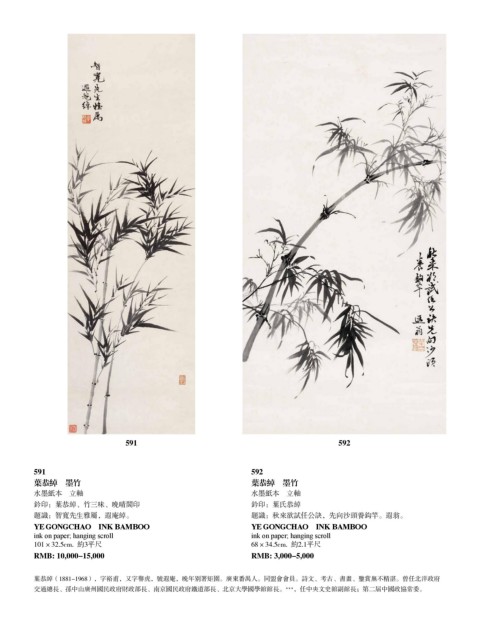 智寬先生雅屬
遐庵綽
秋來欲試任公訣先向沙頭
養鈎竿
遐翁
591
592
591
葉恭綽　墨竹
水墨紙本　立軸
鈐印：葉恭綽、竹三昧、晚晴閣印
題識：智寬先生雅屬，遐庵綽。
YE GONGCHAO　INK BAMBOO
ink on paper; hanging scroll
101 × 32.5cm.　約3平尺
RMB: 10,000-15,000
592
葉恭綽　墨竹
水墨紙本　立軸
鈐印：葉氏恭綽
題識：秋來欲試任公訣，先向沙頭養鈎竿。遐翁。
YE GONGCHAO　INK BAMBOO
ink on paper; hanging scroll
68 × 34.5cm.　約2.1平尺
RMB: 3,000-5,000
葉恭綽（1881-1968），字裕甫，又字譽虎，號遐庵，晚年別署矩園。廣東番禺人。同盟會會員。詩文、考古、書畫、鑒賞無不精湛。曾任北洋政府
交通總長、孫中山廣州國民政府財政部長、南京國民政府鐵道部長、北京大學國學館館長。***，任中央文史館副館長；第二屆中國政協常委。